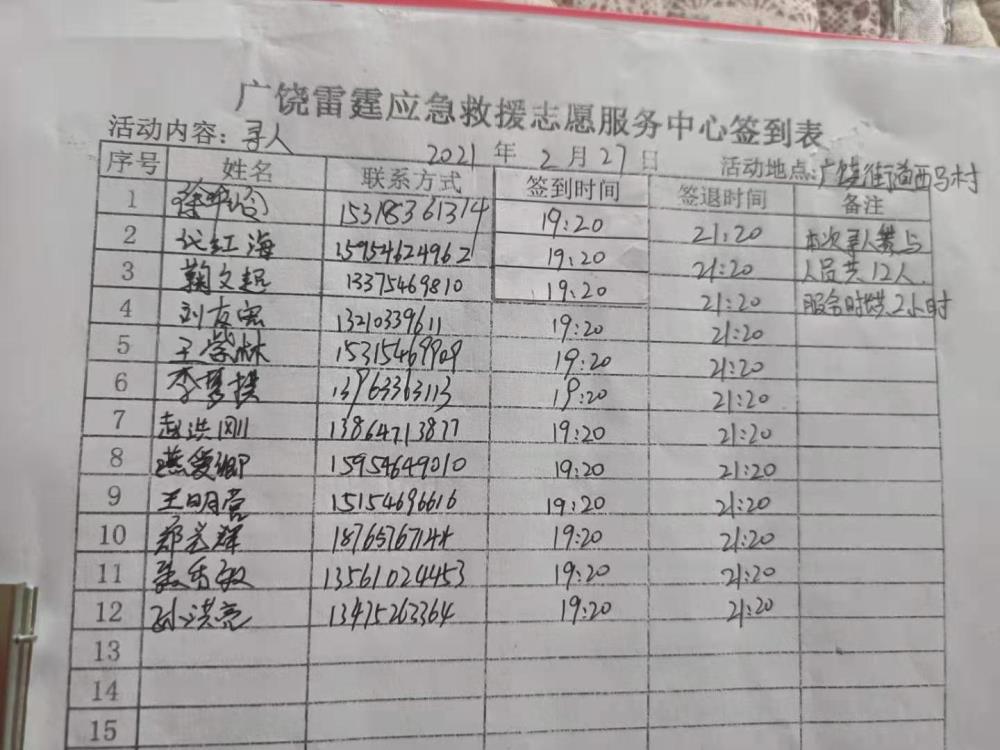 广饶雷霆应急救援志愿服务中心签到表
活动内容：寻人 2021年2月27日 活动地点：广饶街道西马村
序号 姓名 联系方式 签到时间 签退时间 备注
1 15318361314 19:20 21:20 本次寻人参与
2 红海 15954624962 19:20 21:20 人员共12人.
3 鞠文超 13375469810 19:20 21:20 服务时共2小时
4 刘友宝 13210339611 19:20 21:20
5 王学林 15315469909 19:20 21:20
6 13963363113 19:20 21:20
7 赵洪刚 13864713877 19:20 21:20
8 燕爱卿 15954649010 19:20 21:20
9 王明营 15154696616 19:20 21:20
10 郑光辉 18765767144 19:20 21:20
11 13561024453 19:20 21:20
12 孙洪亮 13475263364 19:20 21:20
13
14
15